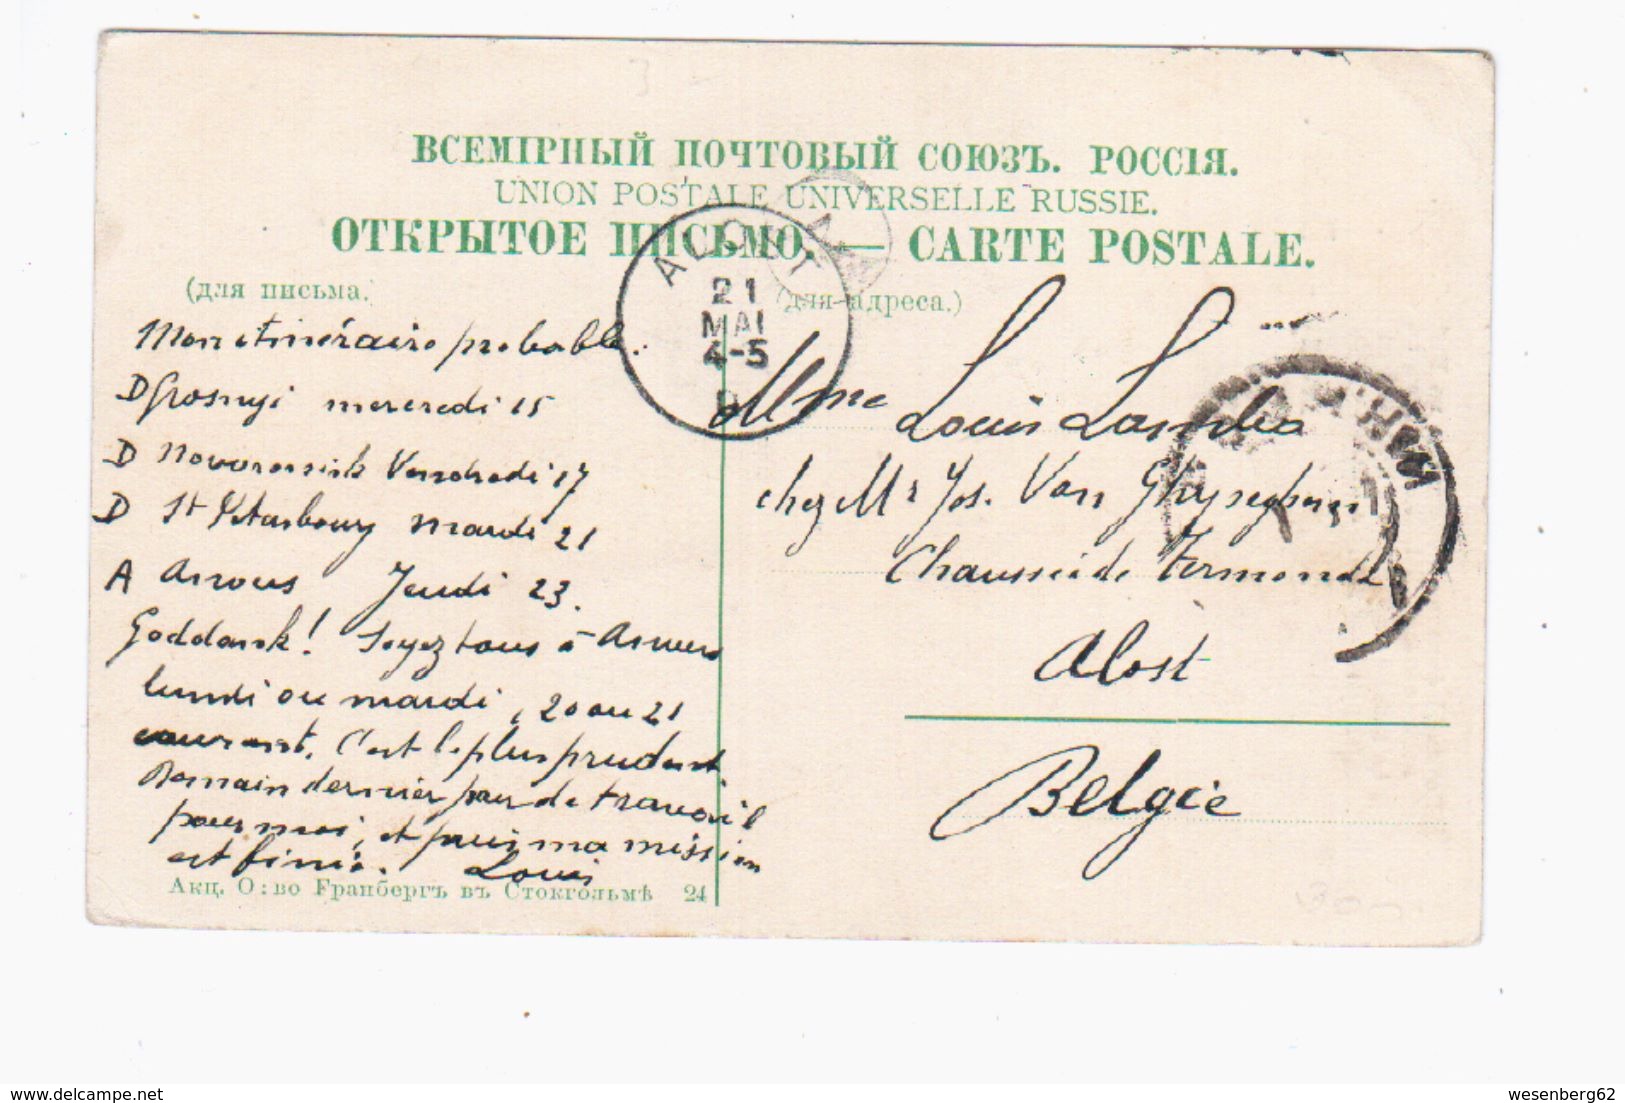 ВСЕМІРНЫЙ ПОЧТОВЫЙ СОЮЗЪ. РОССІЯ.
UNION POSTALE UNIVERSELLE RUSSIE.
ОТКРЫТОЕ ПИСЬМО. — CARTE POSTALE.
(для письма.)
(для адреса.)
ALOST
21
MAI
4-5
Mon itinéraire probable.
D Grosnyi mercredi 15
D Novorossisk Vendredi 17
D St Petersbourg mardi 21
A Anvers Jeudi 23.
Goddank! Soyez tous à Anvers
lundi ou mardi, 20 ou 21
courant. C'est le plus prudent
Demain dernier jour de travail
pour moi, et puis ma mission
est finie. Louis
Mme Louis Lambo
chez Mr Jos. Van Ghyseghem
Chaussée de Termonde
Alost
Belgie
Акц. О: во Гранбергъ въ Стокгольмѣ 24
wesenberg62